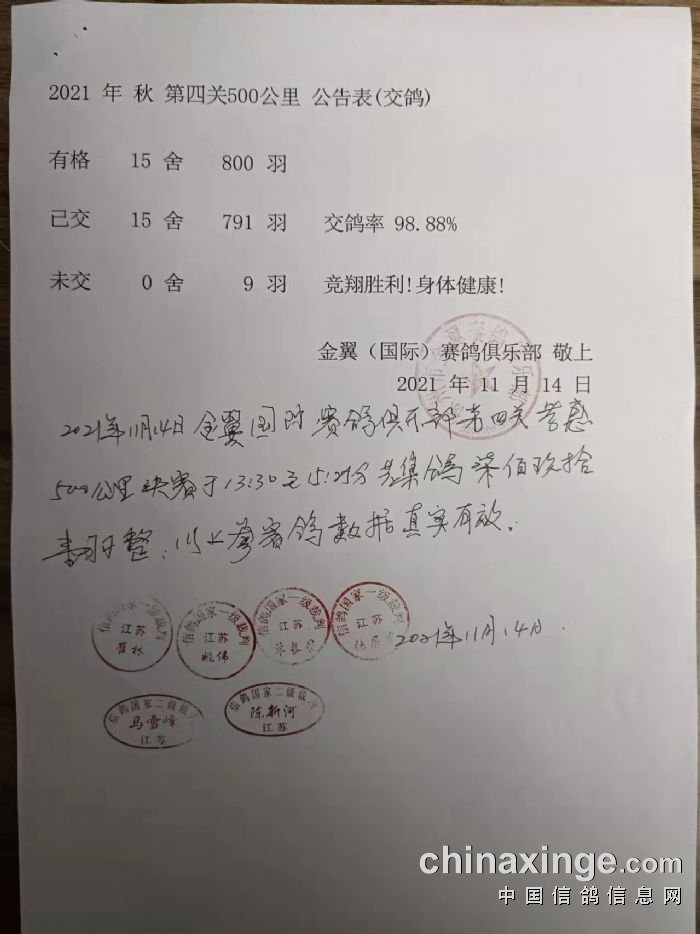 2021 年 秋 第四关500公里 公告表(交鸽)
有格 15 舍 800 羽
已交 15 舍 791 羽 交鸽率 98.88%
未交 0 舍 9 羽 竞翔胜利!身体健康!
金翼（国际）赛鸽俱乐部 敬上
2021 年 11 月 14 日
2021年11月14日金翼国际赛鸽俱乐部第四关
500公里决赛于13:30至15:29分共集鸽柒佰玖拾
壹羽整,以上赛鸽数据真实有效。
信鸽国家一级裁判 江苏
信鸽国家一级裁判 江苏 姚伟
信鸽国家一级裁判 江苏
信鸽国家一级裁判 江苏
2021年11月14日.
信鸽国家二级裁判 马雪峰 江苏
信鸽国家二级裁判 陈新河 江苏
chinaxinge.com
中国信鸽信息网